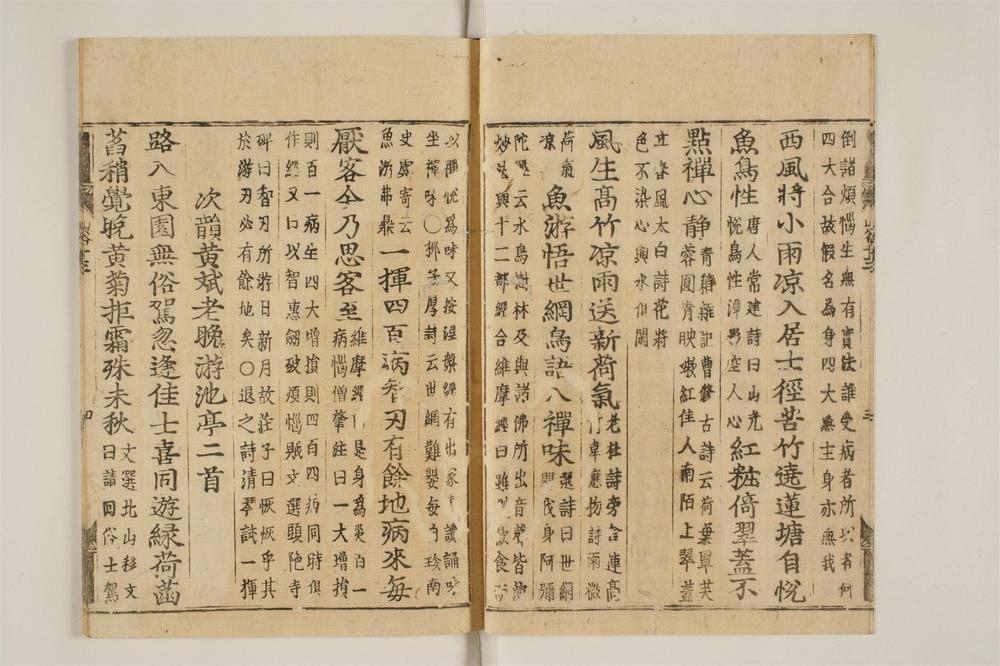 倒諸煩惱生無有實法誰受病者所以者何
四大合故假名為身四大無主身亦無我
西風將小雨凉入居士徑苦竹遶蓮塘自悅
魚鳥性唐人常建詩曰山光
悅鳥性潭影空人心紅粧倚翠蓋不
點禪心靜青箱雜記曹修古詩云荷葉罩芙
蓉圓青映嫩紅佳人南陌上翠蓋
立春風太白詩花將
色不染心與水俱閑
風生高竹凉雨送新荷氣老杜詩旁合連高
竹韋應物詩雨微
荷氣
凉魚游悟世網鳥語入禪味選詩曰世網
嬰我身阿彌
陀經云水鳥樹林及與諸佛所出音聲皆演
妙法與十二部經合維摩經曰雖復飲食而
以禪悅為味又按涅槃經有出家讀誦
坐禪味〇柳子厚詩云世網難嬰每自珍南
史虞寄云
魚游沸鼎一揮四百病智刃有餘地病來每
厭客今乃思客至維摩經曰是身為災百一
病惱僧肇註曰一大增損
則百一病生四大增損則四百四病同時俱
作經又曰以智惠劒破煩惱賊文選頭陁寺
碑曰智刃所游日新月故莊子曰恢恢乎其
於游刃必有餘地矣〇退之詩清琴試一揮
次韻黃斌老晚游池亭二首
路入東園無俗駕忽逢佳士喜同遊緑荷菡
萏稍覺晚黃菊拒霜殊未秋文選北山移文
曰請回俗士駕